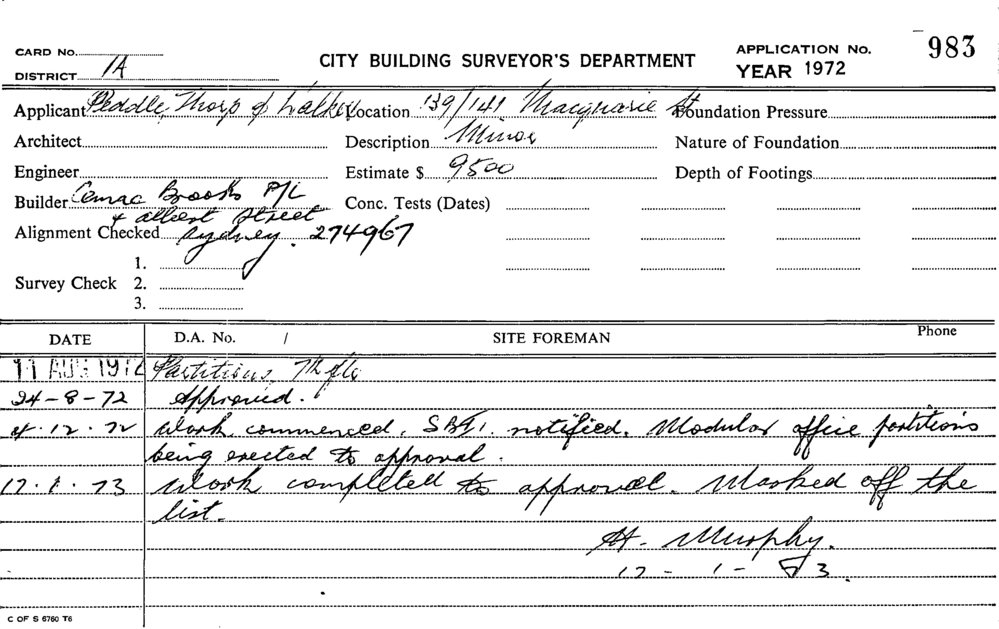 CARD No.
DISTRICT 1A
CITY BUILDING SURVEYOR'S DEPARTMENT
APPLICATION No. 983
YEAR 1972
Applicant Peddle, Thorp & Walker Location 139/141 Macquarie St Foundation Pressure
Architect Description Minor Nature of Foundation
Engineer Estimate $ 9500 Depth of Footings
Builder Cemac Brooks P/L Conc. Tests (Dates)
4 Albert Street
Alignment Checked Sydney. 274967
1.
Survey Check 2.
3.
DATE D.A. No. / SITE FOREMAN Phone
11 AUG 1972 Partitions, 7th flr
24-8-72 Approved.
4.12.72 Work commenced. notified. Modular office partitions
being erected to approval.
17.1.73 Work completed to approval. Marked off the
list.
H. Murphy.
17-1-73.
C OF S 6760 T6